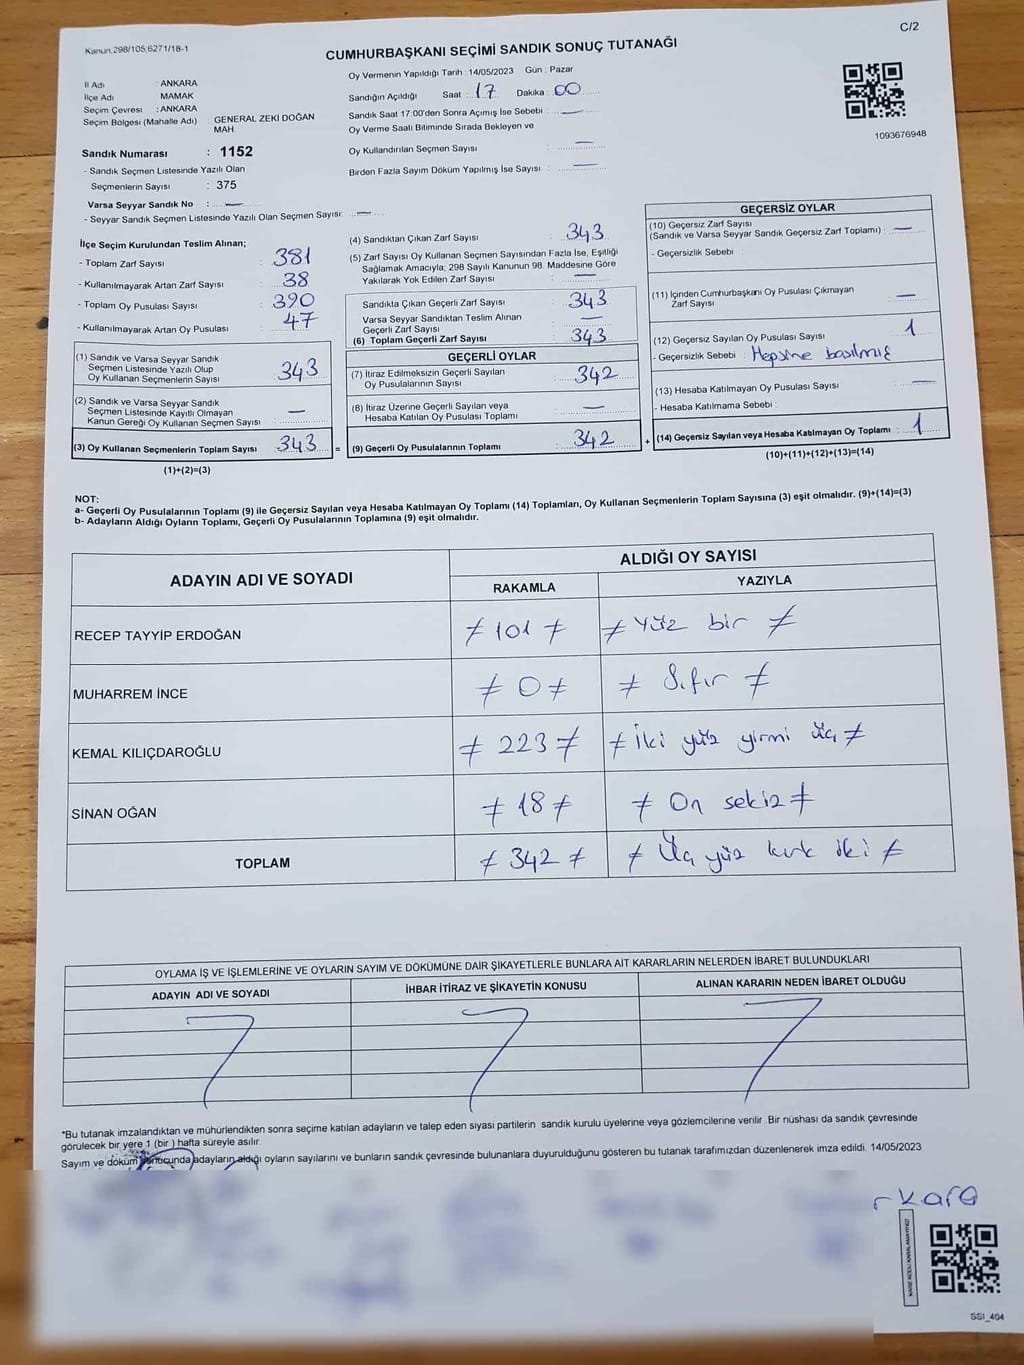 Kanun:298/105,6271/18-1
C/2
CUMHURBAŞKANI SEÇİMİ SANDIK SONUÇ TUTANAĞI
İl Adı : ANKARA
İlçe Adı : MAMAK
Seçim Çevresi : ANKARA
Seçim Bölgesi (Mahalle Adı) GENERAL ZEKİ DOĞAN MAH
Sandık Numarası : 1152
- Sandık Seçmen Listesinde Yazılı Olan
Seçmenlerin Sayısı : 375
Varsa Seyyar Sandık No : —
- Seyyar Sandık Seçmen Listesinde Yazılı Olan Seçmen Sayısı: —
Oy Vermenin Yapıldığı Tarih : 14/05/2023 Gün : Pazar
Sandığın Açıldığı Saat : 17 Dakika : 00
Sandık Saat 17:00'den Sonra Açımış İse Sebebi : —
Oy Verme Saati Bitiminde Sırada Bekleyen ve
Oy Kullandırılan Seçmen Sayısı : —
Birden Fazla Sayım Döküm Yapılmış İse Sayısı : —
1093676948
İlçe Seçim Kurulundan Teslim Alınan;
- Toplam Zarf Sayısı : 381
- Kullanılmayarak Artan Zarf Sayısı : 38
- Toplam Oy Pusulası Sayısı : 390
- Kullanılmayarak Artan Oy Pusulası : 47
(1) Sandık ve Varsa Seyyar Sandık
Seçmen Listesinde Yazılı Olup
Oy Kullanan Seçmenlerin Sayısı : 343
(2) Sandık ve Varsa Seyyar Sandık
Seçmen Listesinde Kayıtlı Olmayan
Kanun Gereği Oy Kullanan Seçmen Sayısı : —
(3) Oy Kullanan Seçmenlerin Toplam Sayısı : 343 =
(1)+(2)=(3)
(4) Sandıktan Çıkan Zarf Sayısı : 343
(5) Zarf Sayısı Oy Kullanan Seçmen Sayısından Fazla İse, Eşitliği
Sağlamak Amacıyla; 298 Sayılı Kanunun 98. Maddesine Göre
Yakılarak Yok Edilen Zarf Sayısı : —
Sandıkta Çıkan Geçerli Zarf Sayısı : 343
Varsa Seyyar Sandıktan Teslim Alınan
Geçerli Zarf Sayısı : —
(6) Toplam Geçerli Zarf Sayısı : 343
GEÇERLİ OYLAR
(7) İtiraz Edilmeksizin Geçerli Sayılan
Oy Pusulalarının Sayısı : 342
(8) İtiraz Üzerine Geçerli Sayılan veya
Hesaba Katılan Oy Pusulası Toplamı : —
(9) Geçerli Oy Pusulalarının Toplamı : 342 +
GEÇERSİZ OYLAR
(10) Geçersiz Zarf Sayısı
(Sandık ve Varsa Seyyar Sandık Geçersiz Zarf Toplamı) : —
- Geçersizlik Sebebi :
(11) İçinden Cumhurbaşkanı Oy Pusulası Çıkmayan
Zarf Sayısı : —
(12) Geçersiz Sayılan Oy Pusulası Sayısı : 1
- Geçersizlik Sebebi : Hepsine basılmış
(13) Hesaba Katılmayan Oy Pusulası Sayısı : —
- Hesaba Katılmama Sebebi :
(14) Geçersiz Sayılan veya Hesaba Katılmayan Oy Toplamı : 1
(10)+(11)+(12)+(13)=(14)
NOT:
a- Geçerli Oy Pusulalarının Toplamı (9) ile Geçersiz Sayılan veya Hesaba Katılmayan Oy Toplamı (14) Toplamları, Oy Kullanan Seçmenlerin Toplam Sayısına (3) eşit olmalıdır. (9)+(14)=(3)
b- Adayların Aldığı Oyların Toplamı, Geçerli Oy Pusulalarının Toplamına (9) eşit olmalıdır.
ADAYIN ADI VE SOYADI ALDIĞI OY SAYISI
RAKAMLA YAZIYLA
RECEP TAYYİP ERDOĞAN ≠ 101 ≠ ≠ Yüz bir ≠
MUHARREM İNCE ≠ 0 ≠ ≠ Sıfır ≠
KEMAL KILIÇDAROĞLU ≠ 223 ≠ ≠ İki yüz yirmi üç ≠
SİNAN OĞAN ≠ 18 ≠ ≠ On sekiz ≠
TOPLAM ≠ 342 ≠ ≠ Üç yüz kırk iki ≠
OYLAMA İŞ VE İŞLEMLERİNE VE OYLARIN SAYIM VE DÖKÜMÜNE DAİR ŞİKAYETLERLE BUNLARA AİT KARARLARIN NELERDEN İBARET BULUNDUKLARI
ADAYIN ADI VE SOYADI İHBAR İTİRAZ VE ŞİKAYETİN KONUSU ALINAN KARARIN NEDEN İBARET OLDUĞU
*Bu tutanak imzalandıktan ve mühürlendikten sonra seçime katılan adayların ve talep eden siyasi partilerin sandık kurulu üyelerine veya gözlemcilerine verilir. Bir nüshası da sandık çevresinde
görülecek bir yere 1 (bir ) hafta süreyle asılır.
Sayım ve döküm sonucunda adayların aldığı oyların sayılarını ve bunların sandık çevresinde bulunanlara duyurulduğunu gösteren bu tutanak tarafımızdan düzenlenerek imza edildi. 14/05/2023
r Kara
SSI_404